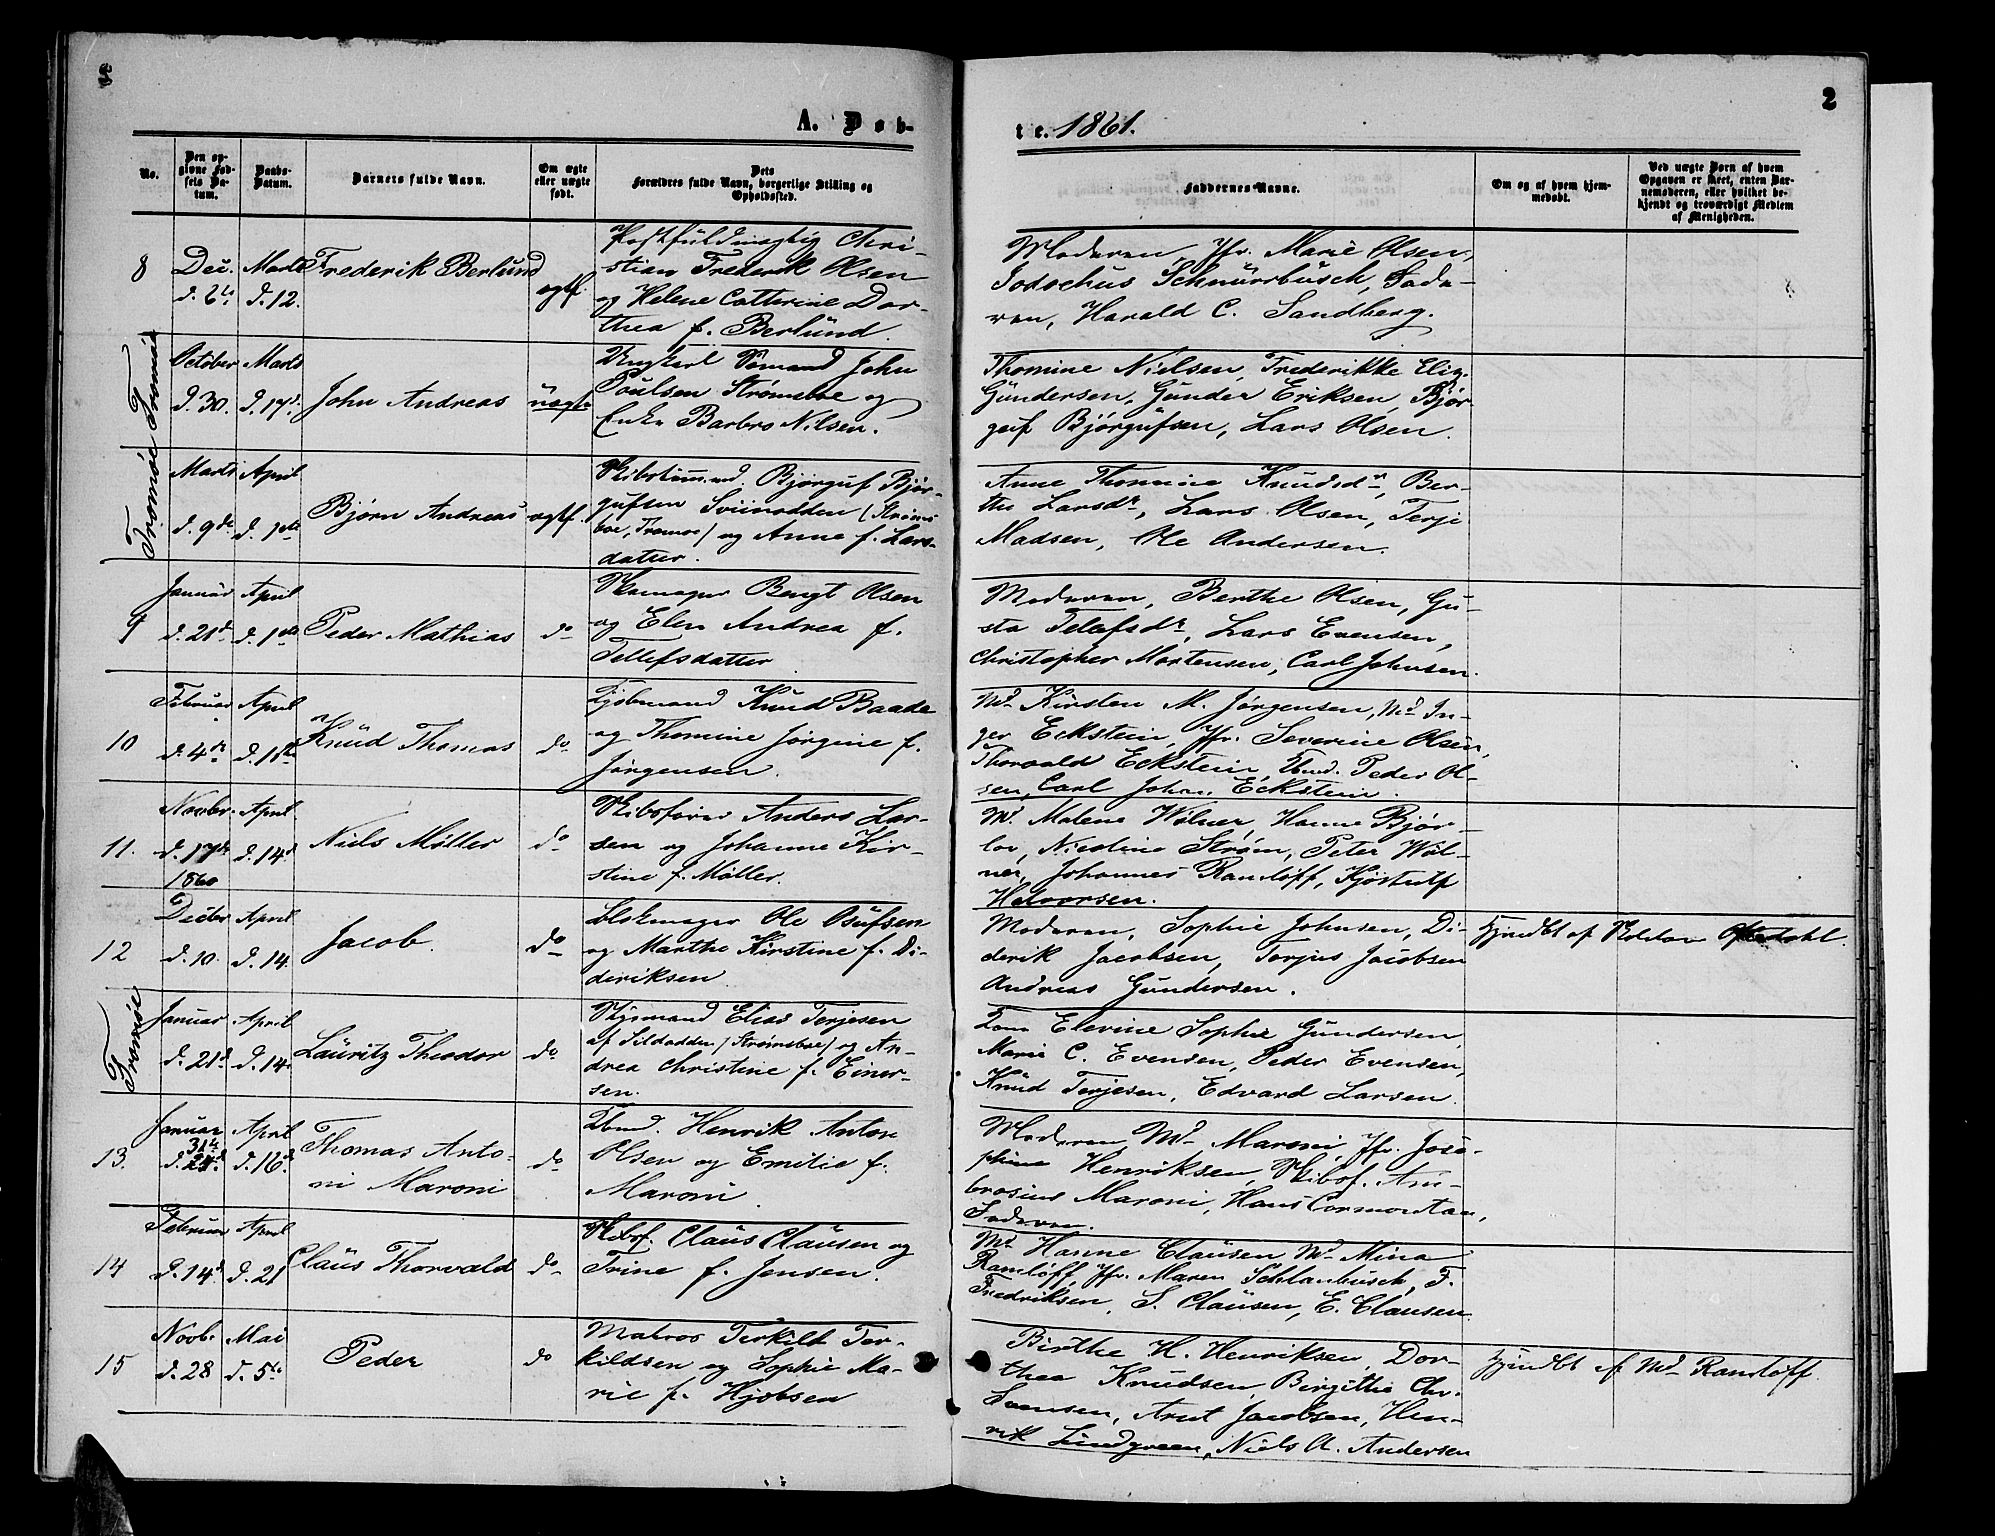 2
A. Døb-
te. 1861.
No.
Den op-
givne Fød-
sels Da-
tum.
Daabs-
Datum.
Barnets fulde Navn.
Om ægte
eller uægte
født.
Dets
Forældres fulde Navn, borgerlige Stilling og
Opholdssted.
Faddernes Navne.
Om og af hvem hjem-
medøbt.
Ved uægte Børn af hvem
Opgaven er skeet, enten Bar-
nemoderen, eller hvilket be-
kjendt og troværdigt Medlem
af Menigheden.
8
Dec.
d. 6te
Marts
d. 12.
Frederik Berlund
ægtf.
Postfuldmægtig Chri-
stian Frederik Olsen
og Helene Catterine Dor-
thea f. Berlund.
Moderen, Jfr. Marie Olsen,
Jodochus Schnürrbusch, Fade-
ren, Harald C. Sandberg.
Tromøe
October
d. 30.
Marts
d. 17d.
John Andreas
uægte
Ungkarl Sømand John
Poulsen Strømsboe og
Enke Barbro Nilsen.
Thomine Nielsen, Frederikke Elig.
Gundersen, Gunder Eriksen, Bjør-
guf Bjørgufsen, Lars Olsen.
Tromøe
Marts
d. 9de
April
d. 1ste
Bjørn Andreas
ægtf.
Skibstømmd. Bjørguf Bjør-
gufsen Sviinodden (Strøms-
boe, Tromøe) og Anne f. Lars-
datter.
Anne Thomine Knudsdr, Ber-
the Larsdr, Lars Olsen, Terje
Madsen, Ole Andersen.
9
Januar
d. 21d
April
d. 1ste
Peder Mathias
do
Skomager Bengt Olsen
og Elen Andrea f.
Tellefsdatter
Moderen, Berthe Olsen, Gu-
sta Telefsdr, Lars Evensen,
Christopher Mortensen, Carl Johnsen.
10
Februar
d. 4de
April
d. 1ste
Knud Thomas
do
Kjøbmand Knud Baade
og Thomine Jørgine f.
Jørgensen.
Md Kirsten M. Jørgensen, Md In-
ger Eckstein, Jfr. Severine Olsen,
Thorvald Eckstein, Tbmd. Peder Ol-
sen, Carl Johan Eckstein.
11.
Novbr.
d. 17de
1860
April
d. 14d
Niels Møller
do
Skibsfører Anders Lar-
sen og Johanne Kir-
stine f. Møller.
Md. Malene Wølner, Hanne Bjør-
lov, Nicoline Strøm, Peter Wøl-
ner, Johannes Ramløff, Kjøstulf
Halvorsen.
12
Decbr
d. 10.
April
d. 14.
Jacob.
do
Blokmager Ole Osufsen
og Marthe Kirstine f. Di-
deriksen
Moderen, Sophie Johnsen, Di-
derik Jacobsen, Torjus Jacobsen
Andreas Gundersen.
Hjmdbt af Rektor Oftedahl.
Tromøe
Januar
d. 21d
April
d. 14.
Lauritz Theodor
do
Styrmand Elias Terjesen
af Sildodden (Strømsboe) og An-
drea Christine f. Einer-
sen.
Elevine Sophie Gundersen,
Marie C. Evensen, Peder Evensen,
Knud Terjesen, Edvard Larsen.
13.
Januar
31te
April
d. 16d.
Thomas Anto-
ni Maroni
do
Tbmd. Henrik Anton
Olsen og Emilie f.
Maroni.
Moderen, Md Maroni, Jfr. Jose-
phine Henriksen, Skibsf. Am-
brosius Maroni, Hans Cormontan,
Faderen.
14
Februar
d. 14d
April
d. 21
Claus Thorvald
do
Skibsf. Claus Clausen og
Trine f. Jensen.
Md Hanne Clausen, Md Mina
Ramløff, Jfr. Maren Schlanbusch, F.
Fredriksen, S. Clausen, E. Clausen.
15
Novb.
d. 28
Mai
d. 5te
Peder
do
Matros Terkild Ter-
kildsen og Sophie Ma-
rie f. Hjobsen
Birthe H. Henriksen, Dor-
thea Knudsen, Birgitte Chr.
Svensen, Arnt Jacobsen, Hen-
rik Lindgreen, Niels A. Andersen
Hjmdbt af Md Ramløff.